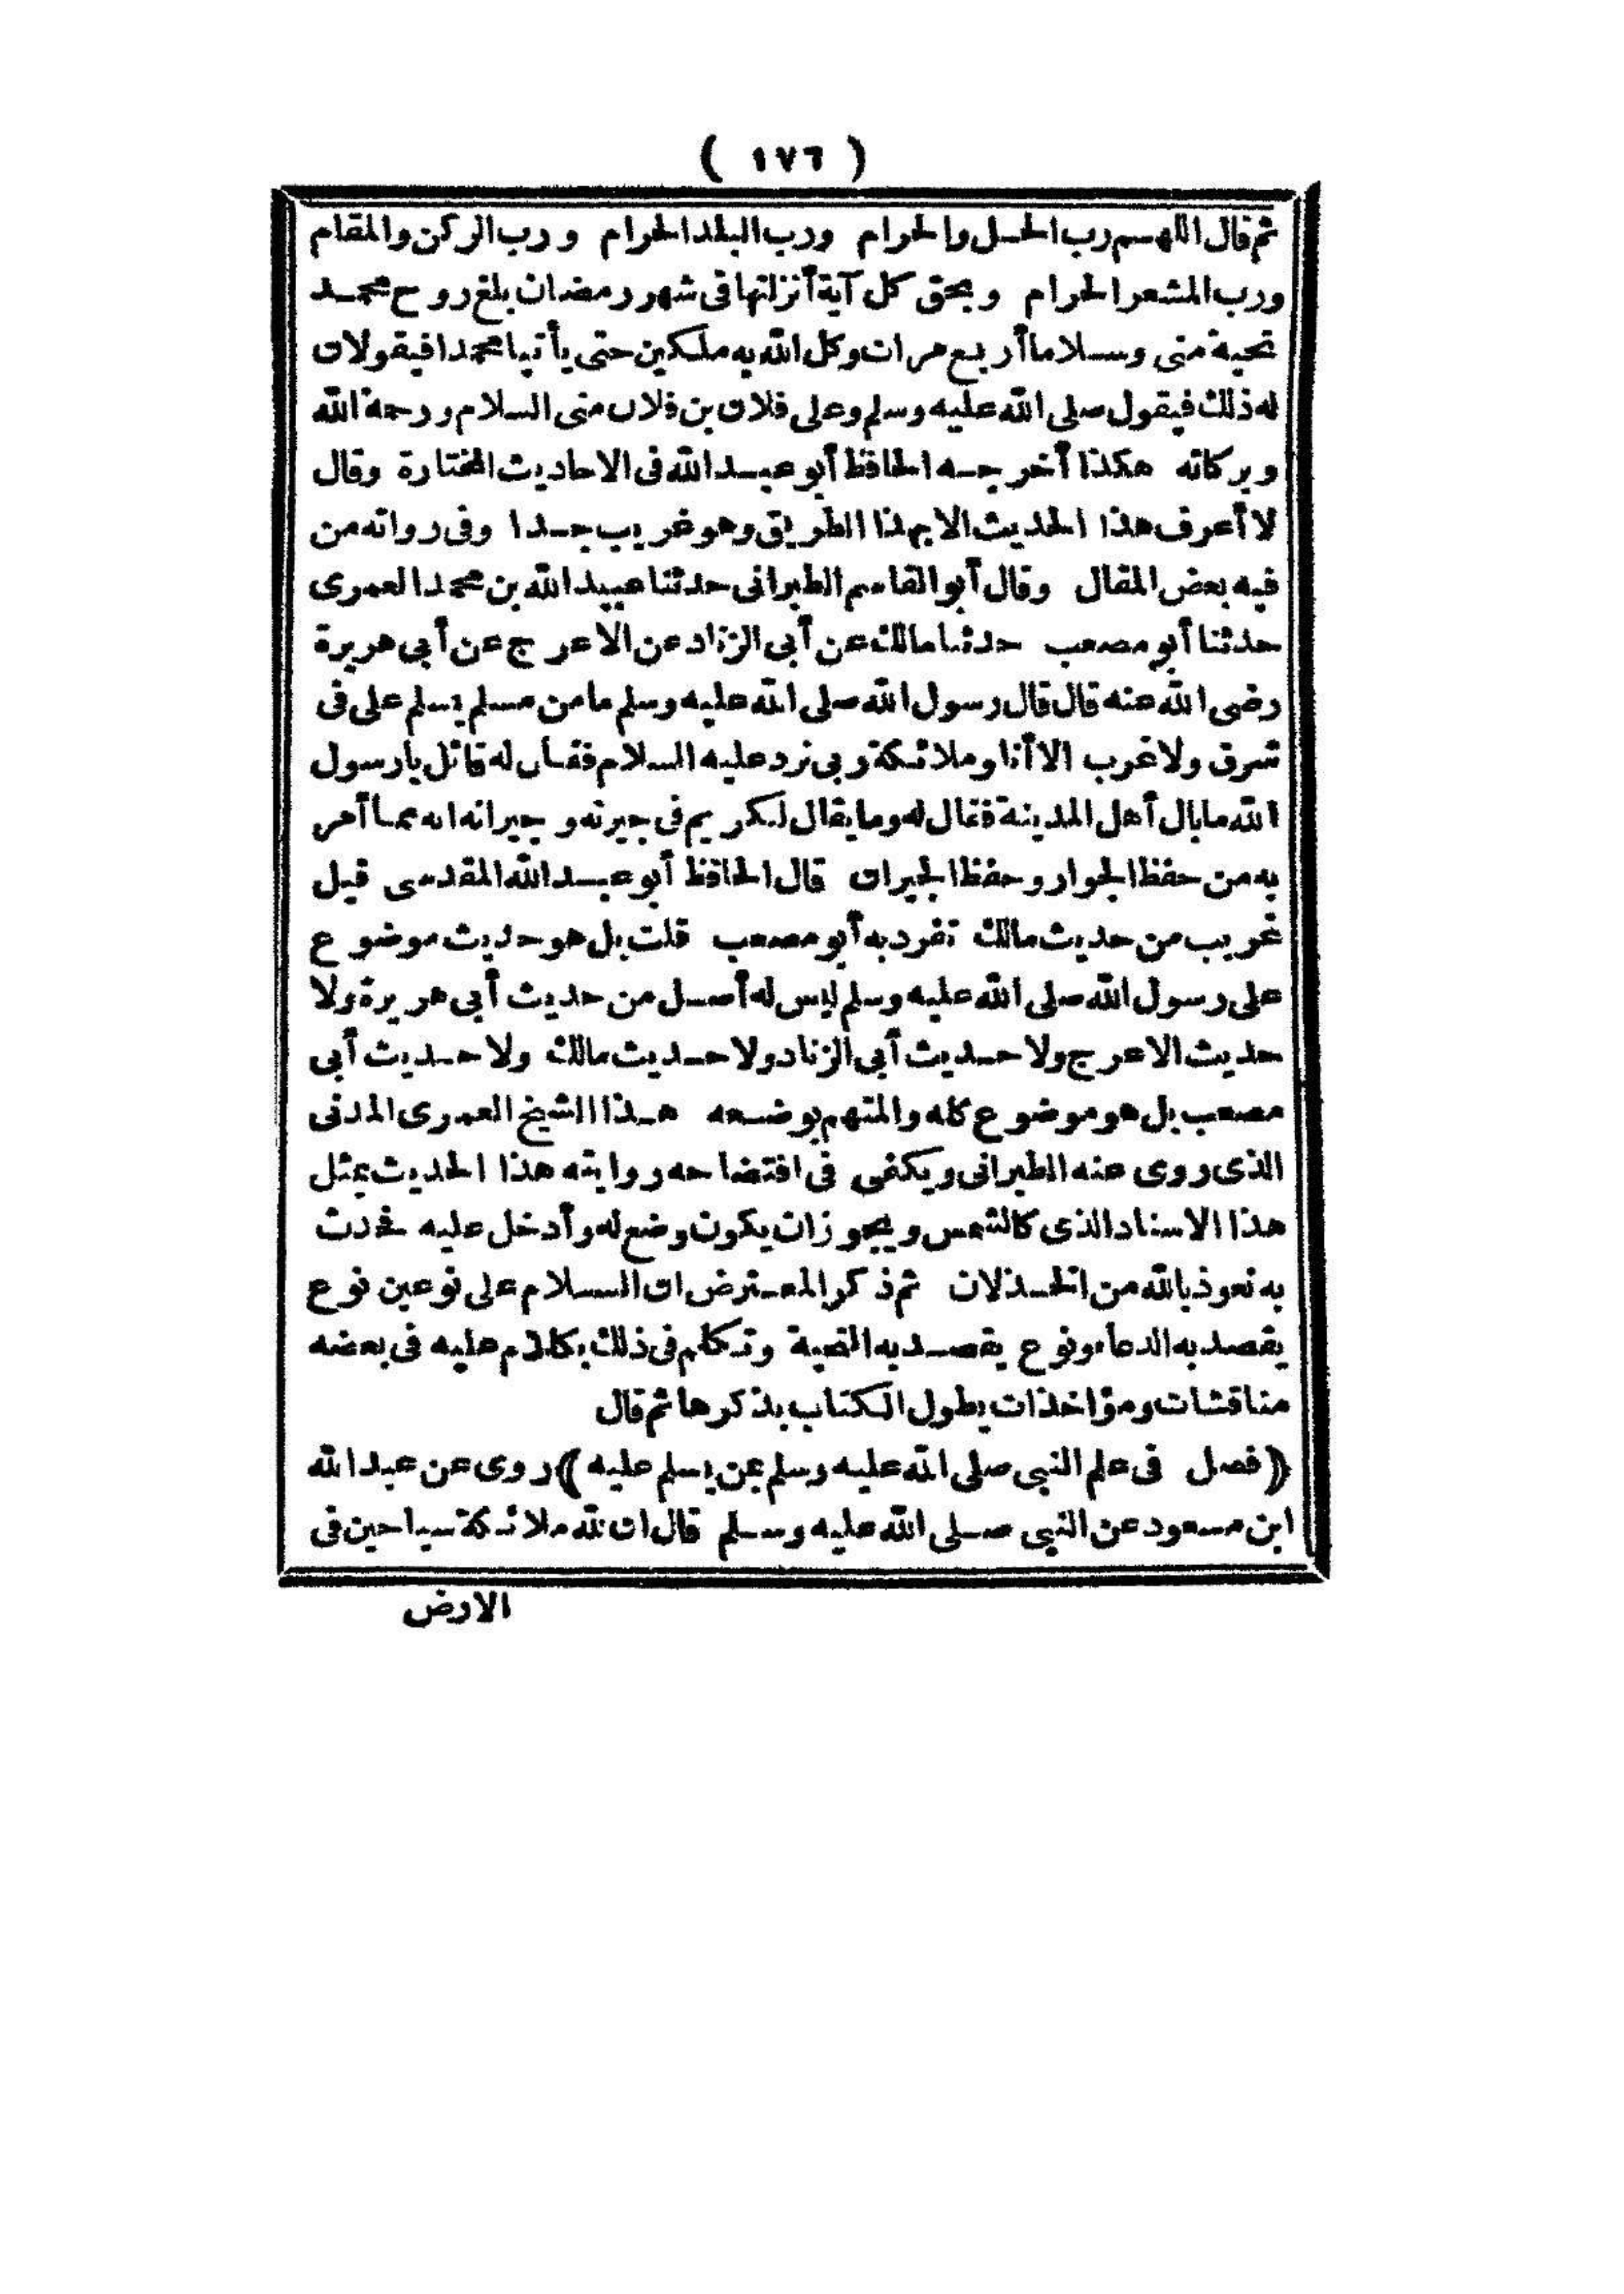 ( ١٧٦ )
ثم قال اللهم رب الحل والحرام ورب البلد الحرام ورب الركن والمقام
ورب المشعر الحرام وبحق كل آية أنزلتها فى شهر رمضان بلغ روح محمد
تحية منى وسلاما أربع مرات وكل الله به ملكين حتى يأتيا محمدا فيقولان
له ذلك فيقول صلى الله عليه وسلم وعلى فلان بن فلان منى السلام ورحمة الله
وبركاته هكذا أخرجه الحافظ أبو عبد الله فى الاحاديث المختارة وقال
لا أعرف هذا الحديث الا بهذا الطريق وهو غريب جدا وفى رواته من
فيه بعض المقال وقال أبو القاسم الطبرانى حدثنا عبيد الله بن محمد العمرى
حدثنا أبو مصعب حدثنا مالك عن أبى الزناد عن الاعرج عن أبى هريرة
رضى الله عنه قال قال رسول الله صلى الله عليه وسلم ما من مسلم يسلم على فى
شرق ولا غرب الا أنا وملائكة ربى نرد عليه السلام فقال له قائل يا رسول
الله ما بال أهل المدينة فقال له وما يقال لكريم فى جيرته وجيرانه انه مما أمر
به من حفظ الجوار وحفظ الجيران قال الحافظ أبو عبد الله المقدسى قيل
غريب من حديث مالك تفرد به أبو مصعب قلت بل هو حديث موضوع
على رسول الله صلى الله عليه وسلم ليس له أصل من حديث أبى هريرة ولا
حديث الاعرج ولا حديث أبى الزناد ولا حديث مالك ولا حديث أبى
مصعب بل هو موضوع كله والمتهم بوضعه هذا الشيخ العمرى المدنى
الذى روى عنه الطبرانى ويكفى فى افتضاحه روايته هذا الحديث بمثل
هذا الاسناد الذى كالشمس ويجوز ان يكون وضع له وأدخل عليه فحدث
به نعوذ بالله من الخذلان ثم ذكر المعترض ان السلام على نوعين نوع
يقصد به الدعاء ونوع يقصد به التحية وتكلم فى ذلك بكلام عليه فى بعضه
مناقشات ومؤاخذات يطول الكتاب بذكرها ثم قال
(فصل فى علم النبى صلى الله عليه وسلم بمن يسلم عليه) روى عن عبد الله
ابن مسعود عن النبى صلى الله عليه وسلم قال ان لله ملائكة سياحين فى
الارض